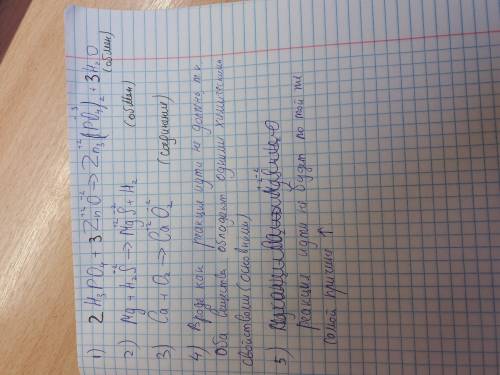 1) 2 H₃PO₄ + 3 ZnO → Zn₃(PO₄)₂ + 3H₂O
(обмен)
2) Mg + H₂S → MgS + H₂ (обмен)
3) Ca + O₂ → CaO₂ (соединение)
4) Вроде как реакция идти не должна, т.к.
оба вещества обладают одними химическими
свойствами (основными)
5)
реакция идти не будет по той же
самой причине ↑